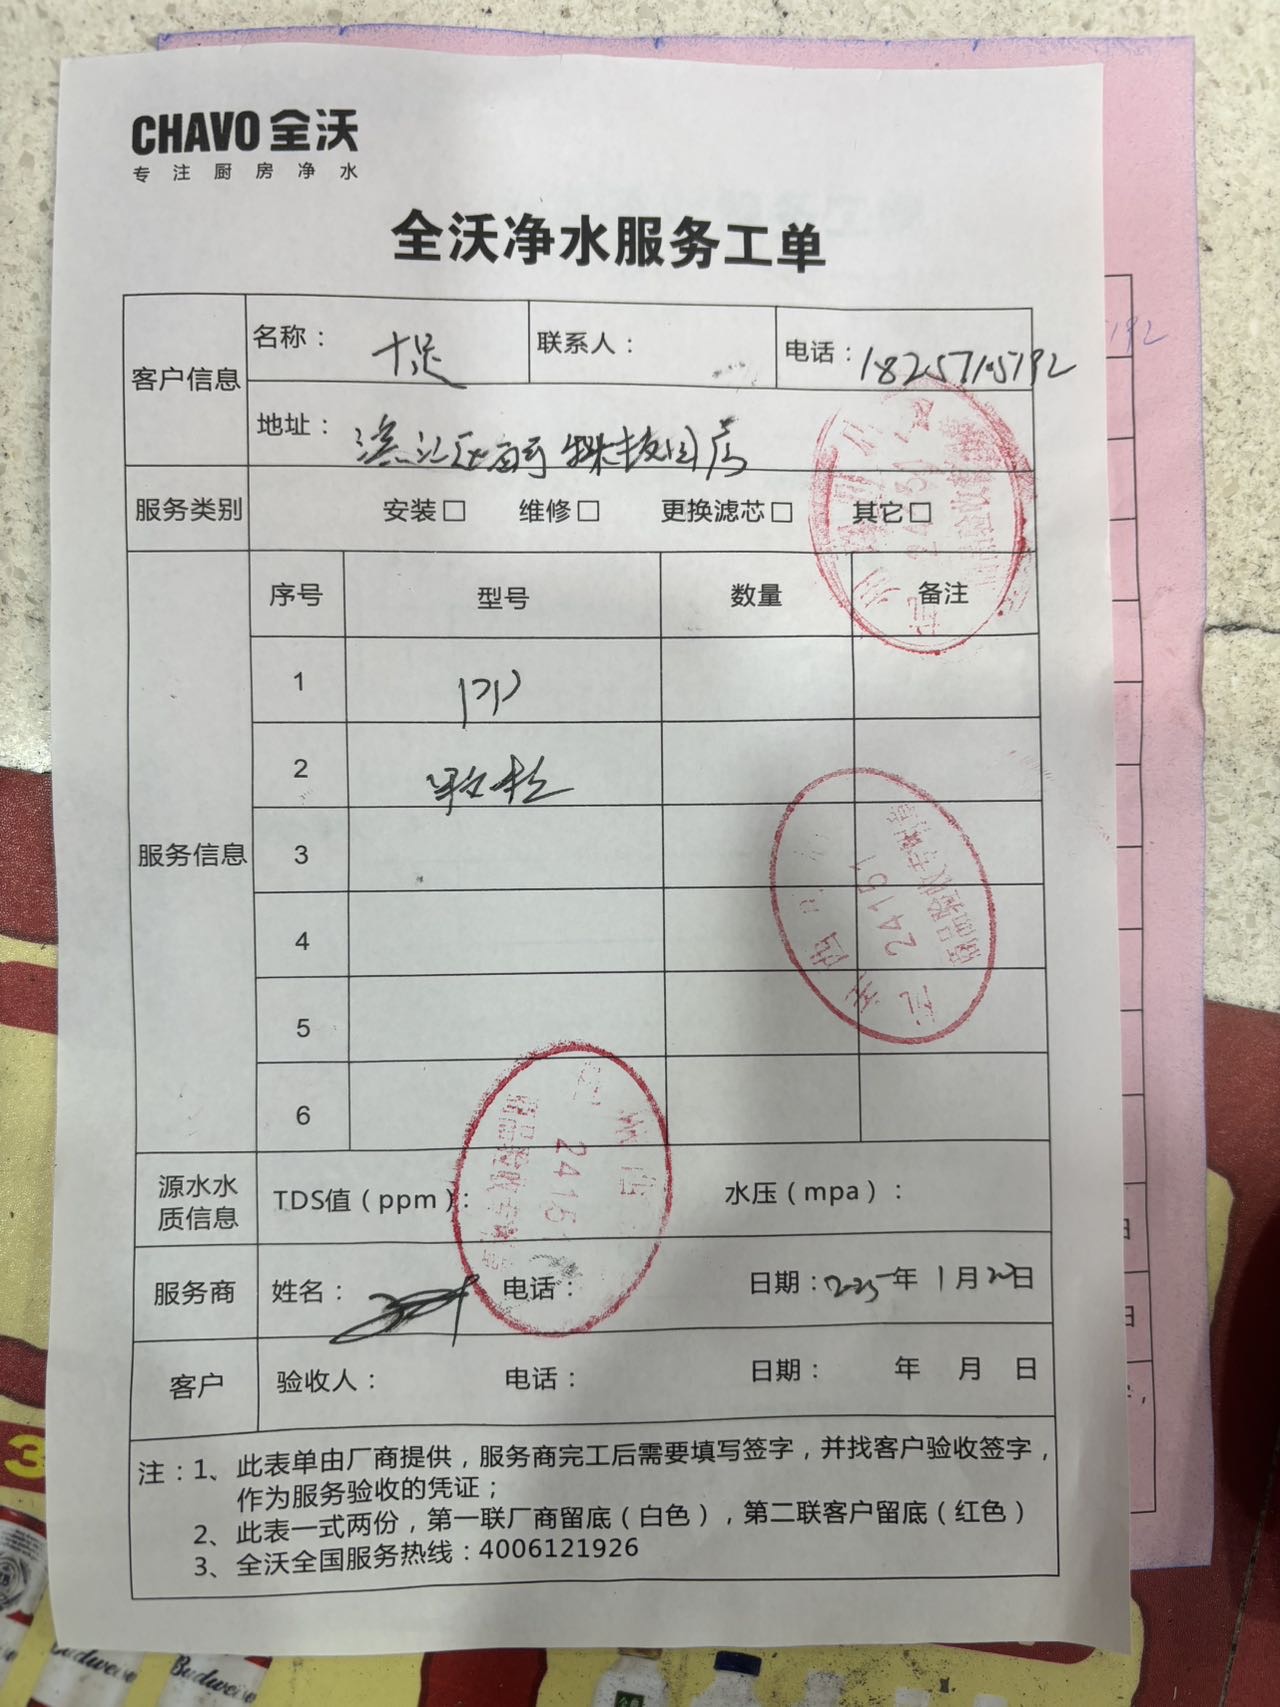 CHAVO 全沃
专注厨房净水
全沃净水服务工单
客户信息
名称： 十足
联系人：
电话：18257105192
地址：滨江区
服务类别
安装□ 维修□ 更换滤芯□ 其它□
服务信息
序号 型号 数量 备注
1
2 颗粒
3
4
5
6
源水水质信息
TDS值（ppm）：
水压（mpa）：
服务商
姓名：
电话：
日期：2025年 1月 20日
客户
验收人：
电话：
日期： 年 月 日
注：1、此表单由厂商提供，服务商完工后需要填写签字，并找客户验收签字，
作为服务验收的凭证；
2、此表一式两份，第一联厂商留底（白色），第二联客户留底（红色）
3、全沃全国服务热线：4006121926
24151
商品验收专用章
24151
2415
5192
Budweiser
Budweiser